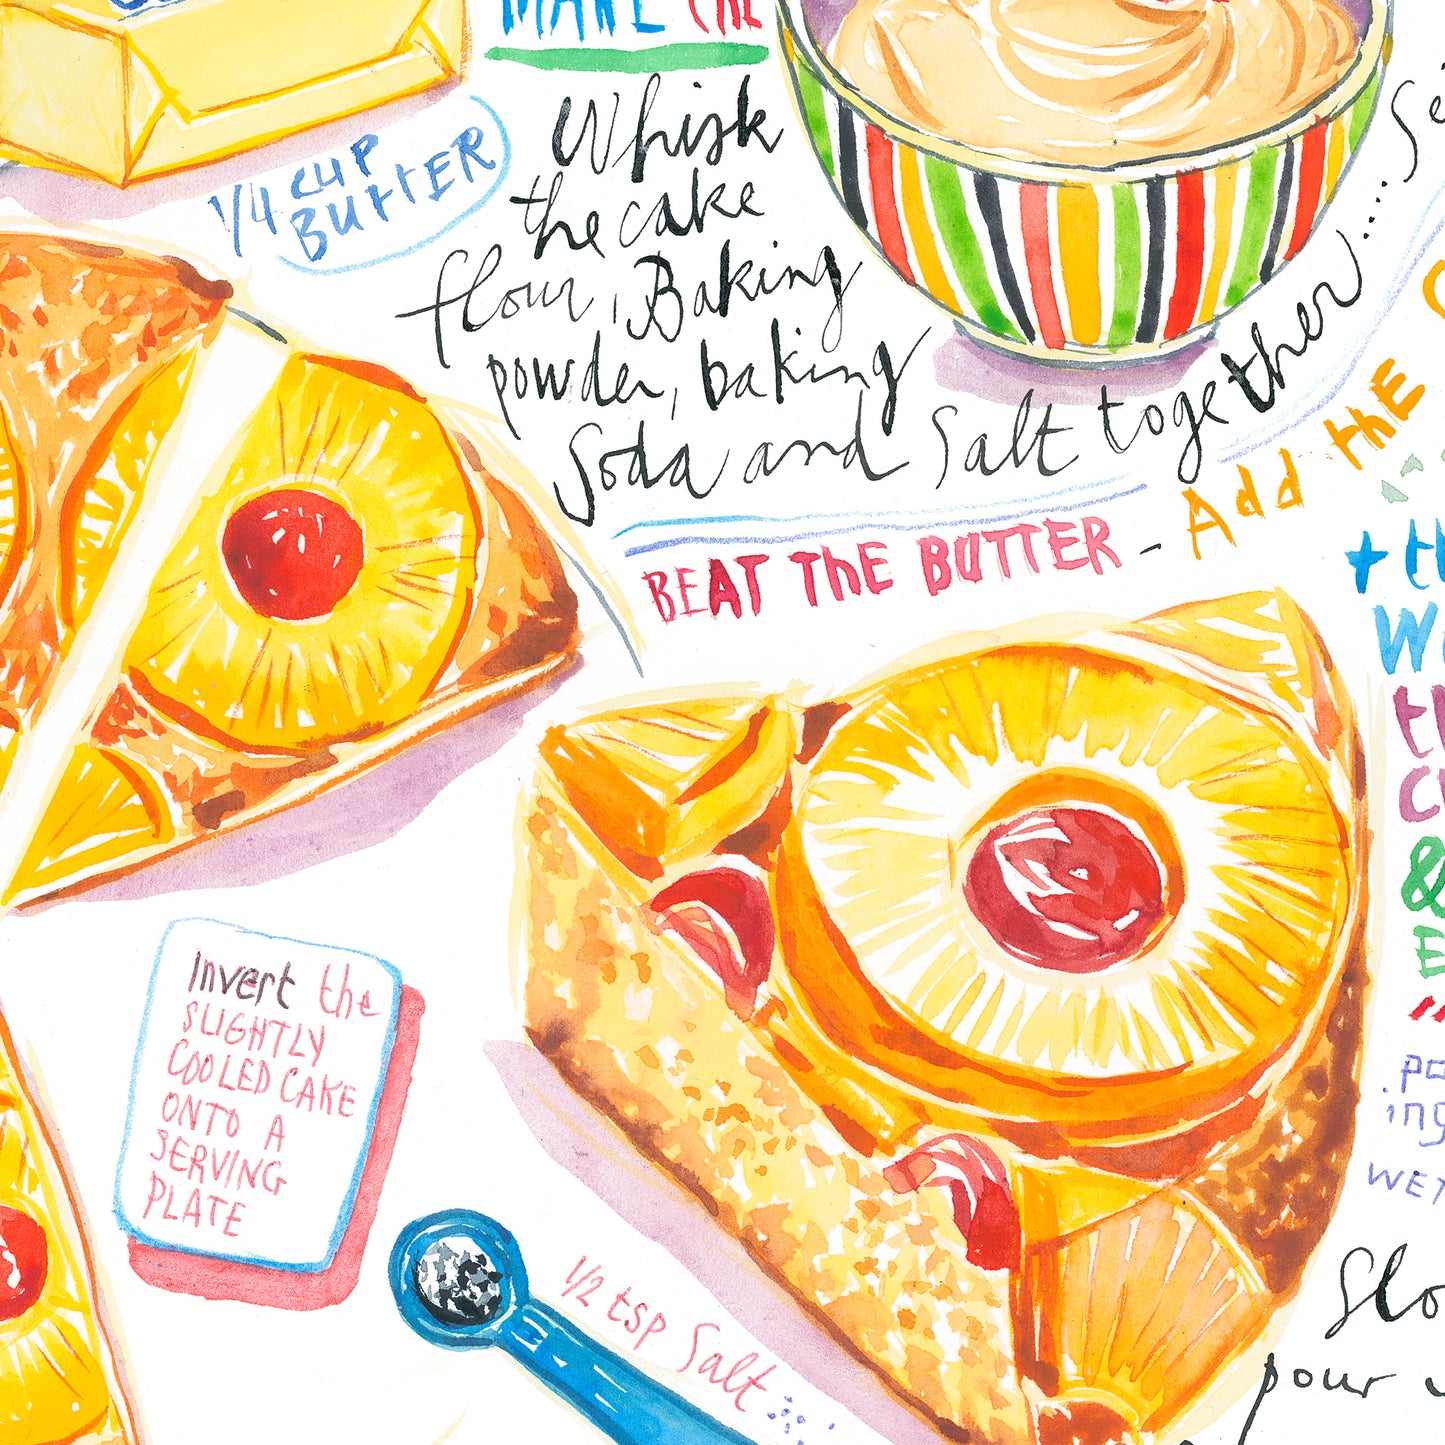 MAKE THE
1/4 CUP
BUTTER
Whisk
the cake
flour, Baking
powder, baking
Soda and Salt together.....
BEAT THE BUTTER - Add thE
Invert the
SLIGHTLY
COOLED CAKE
ONTO A
SERVING
PLATE
1/2 tsp Salt
+
&
pour